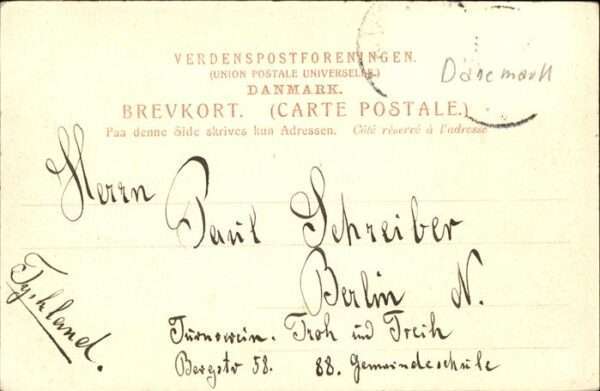 VERDENSPOSTFORENINGEN.
(UNION POSTALE UNIVERSELLE.)
DANMARK.
BREVKORT. (CARTE POSTALE.)
Paa denne Side skrives kun Adressen. Côté réservé à l'adresse
Dänemark
Herrn
Paul Schreiber
Berlin N.
Tyskland.
Turnverein. Froh und Freih
Bergstr 58. 88. Gemeindeschule